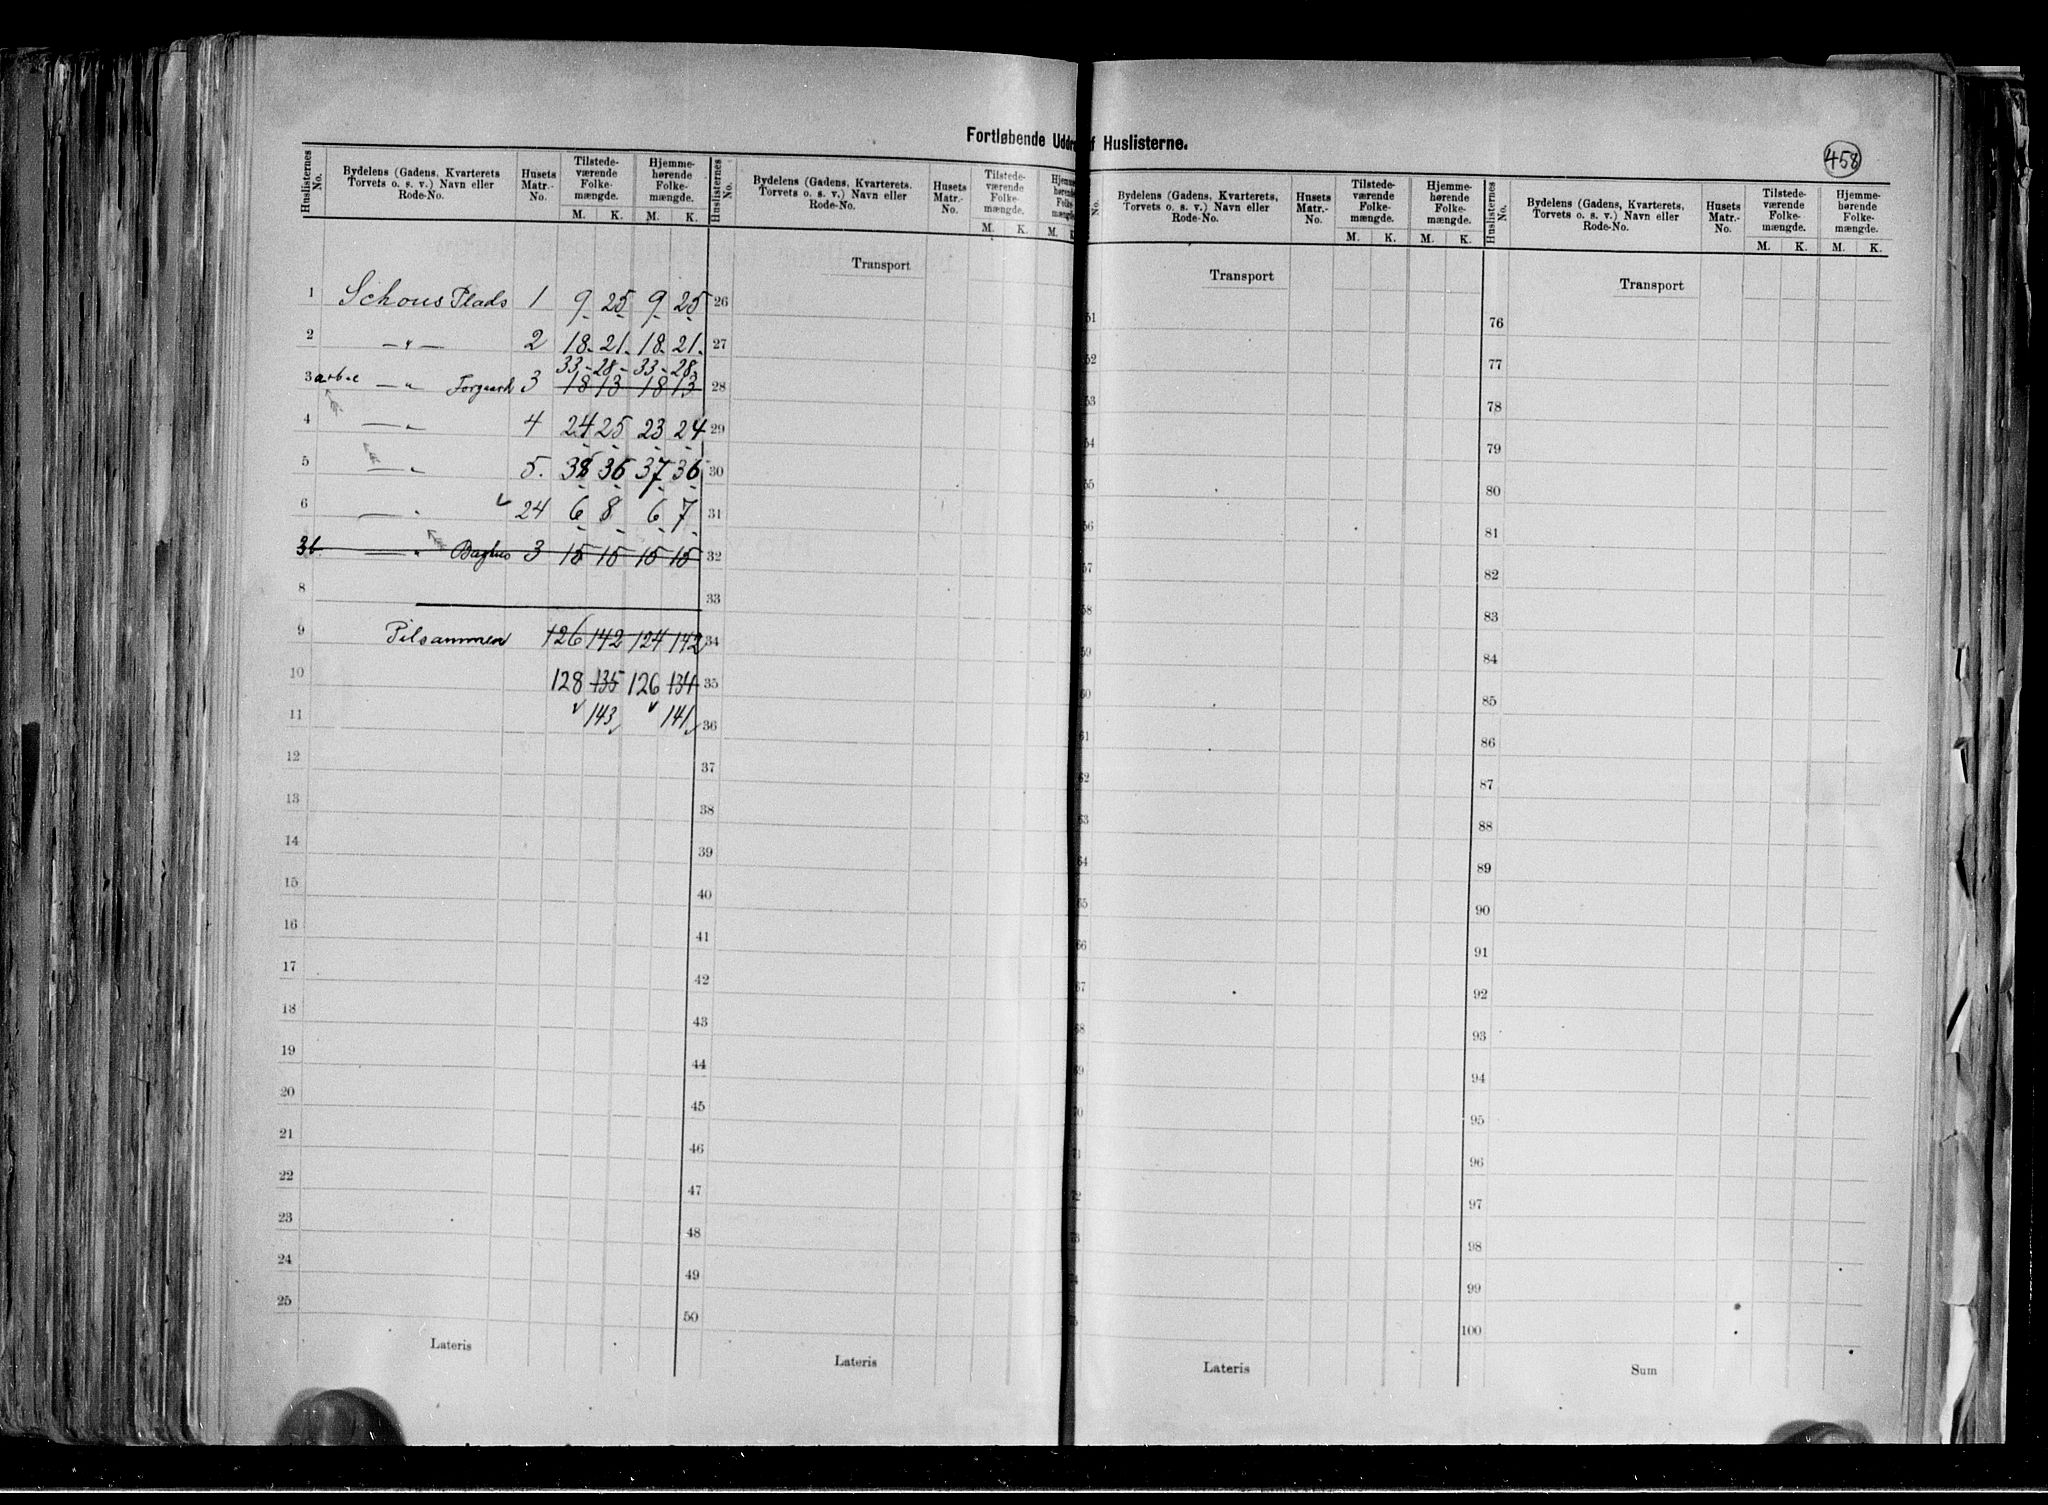 Fortløbende Uddr f Huslisterne.
458
Huslisternes No. Bydelens (Gadens, Kvarterets Torvets o. s. v.) Navn eller Rode-No. Husets Matr.-No. Tilstede-værende Folke-mængde. M. K. Hjemme-hørende Folke-mængde. M. K.
Huslisternes No. Bydelens (Gadens, Kvarterets, Torvets o. s. v.) Navn eller Rode-No. Husets Matr.-No. Tilstede-værende Folke-mængde. M. K. Hjemme-hørende Folke-mængde. M. K.
No. Bydelens (Gadens, Kvarterets, Torvets o. s. v.) Navn eller Rode-No. Husets Matr.-No. Tilstede-værende Folke-mængde. M. K. Hjemme-hørende Folke-mængde. M. K.
Huslisternes No. Bydelens (Gadens, Kvarterets, Torvets o. s. v.) Navn eller Rode-No. Husets Matr.-No. Tilstede-værende Folke-mængde. M. K. Hjemme-hørende Folke-mængde. M. K.
1 Schous Plads 1 9 25 9 25
2 —„— 2 18 21 18 21
33 28 33 28
3 a+b+c —„ Forgaard 3 18 13 18 13
4 —„ 4 24 25 23 24
5 —„ 5. 38 36 37 36
6 —„ 24 6 8 6 7
3b —„ Baghus 3 15 15 15 15
8
9 Tilsammen 126 142 124 142
10 128 135 126 134
11 143 141
12
13
14
15
16
17
18
19
20
21
22
23
24
25
Lateris
Transport
26
27
28
29
30
31
32
33
34
35
36
37
38
39
40
41
42
43
44
45
46
47
48
49
50
Lateris
Transport
51
52
53
54
55
56
57
58
59
60
61
62
63
64
65
66
67
68
69
70
71
72
73
74
75
Lateris
Transport
76
77
78
79
80
81
82
83
84
85
86
87
88
89
90
91
92
93
94
95
96
97
98
99
100
Sum